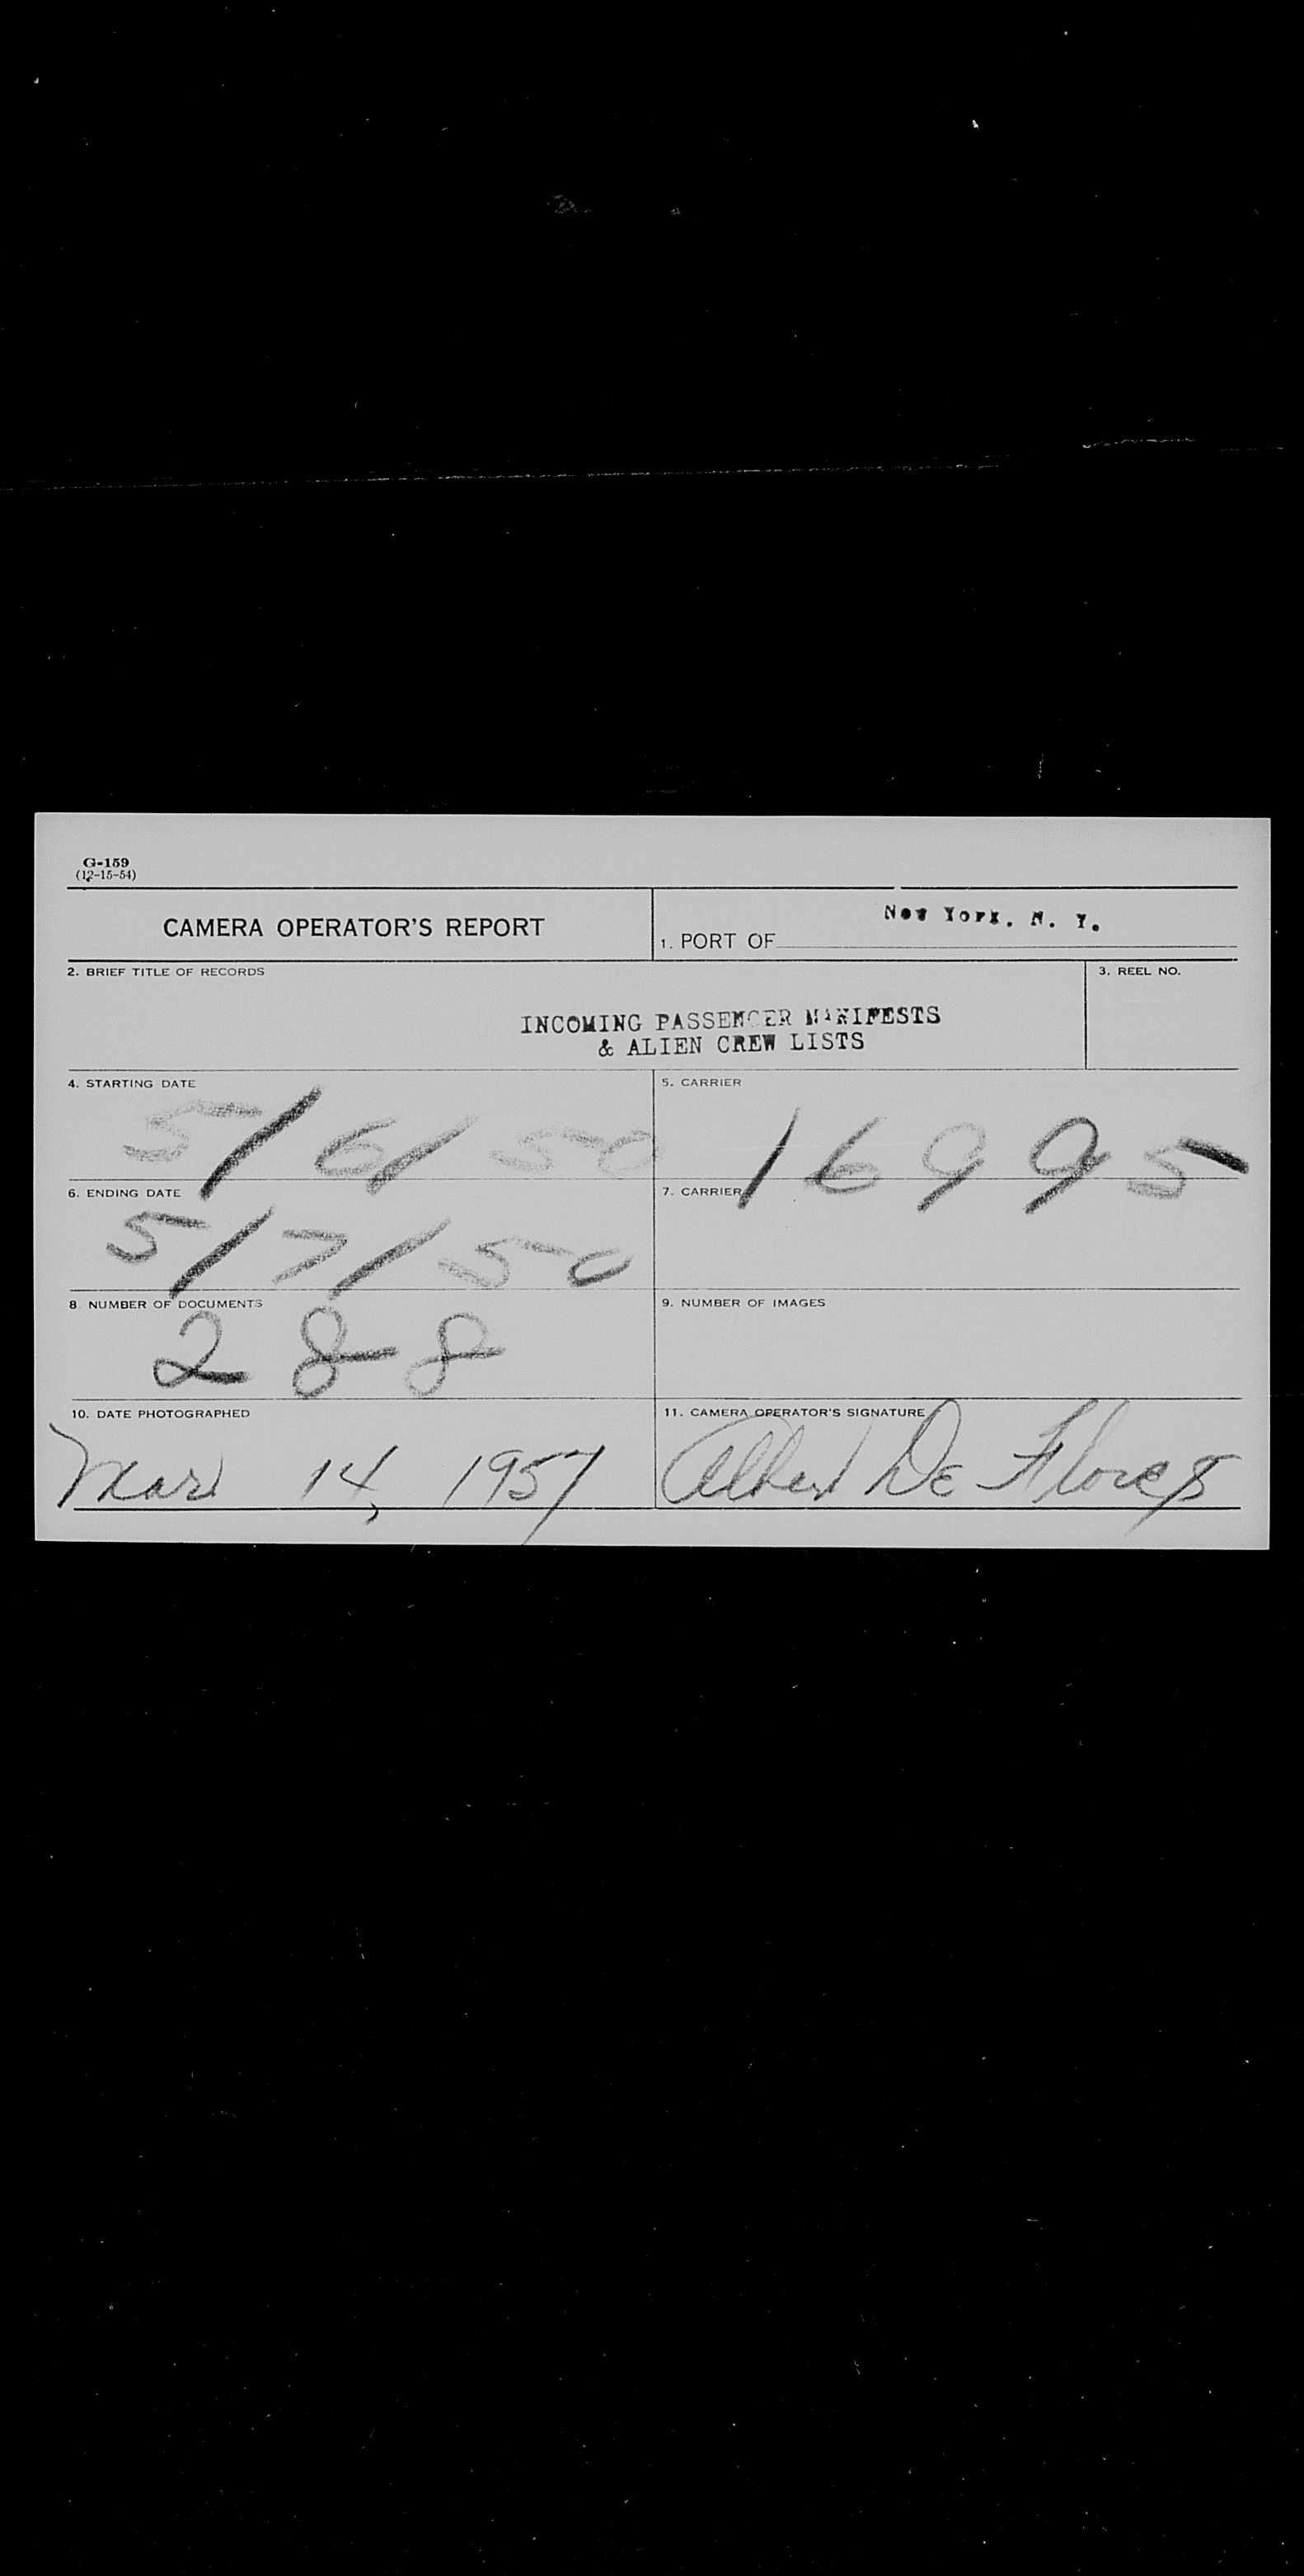 G-159
(12-15-54)
CAMERA OPERATOR'S REPORT
1. PORT OF New York, N. Y.
2. BRIEF TITLE OF RECORDS
3. REEL NO.
INCOMING PASSENGER MANIFESTS
& ALIEN CREW LISTS
4. STARTING DATE
5/6/50
5. CARRIER
16995
6. ENDING DATE
5/7/50
7. CARRIER
8. NUMBER OF DOCUMENTS
288
9. NUMBER OF IMAGES
10. DATE PHOTOGRAPHED
Mar 14, 1957
11. CAMERA OPERATOR'S SIGNATURE
Albert De Flores